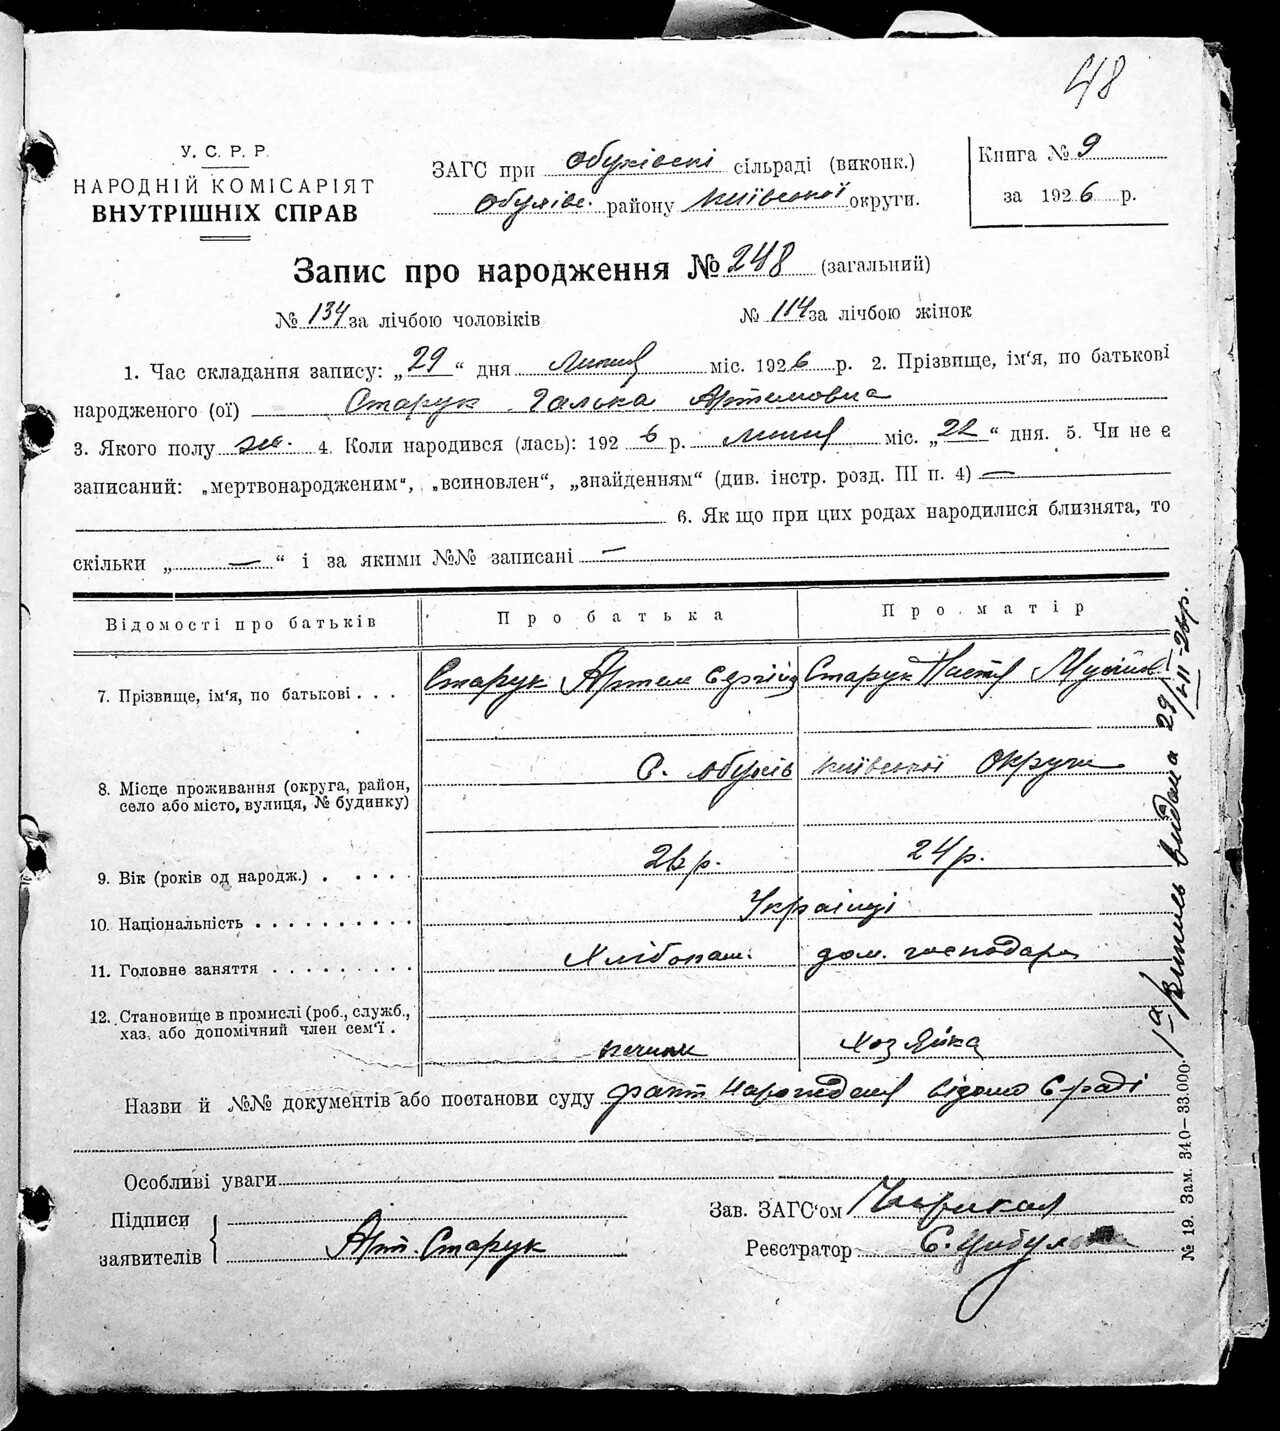 48
У. С. Р. Р.
НАРОДНІЙ КОМІСАРІЯТ
ВНУТРІШНІХ СПРАВ
ЗАГС при Обухівскі сільраді (виконк.)
Обухівс. району Київської округи.
Книга № 9
за 1926 р.
Запис про народження № 248 (загальний)
№ 134 за лічбою чоловіків № 114 за лічбою жінок
1. Час складання запису: „29“ дня Липня міс. 1926 р. 2. Прізвище, ім‘я, по батькові
народженого (ої) Старук Галька Артемовна
3. Якого полу жі. 4. Коли народився (лась): 1926 р. липня міс. „22“ дня. 5. Чи не є
записаний: „мертвонародженим“, „всиновлен“, „знайденням“ (див. інстр. розд. III п. 4) —
6. Як що при цих родах народилися близнята, то
скільки „ — “ і за якими №№ записані —
Відомості про батьків Про батька Про матір
7. Прізвище, ім‘я, по батькові . . . Старук Артем Сергій Старук Настя Мусіїв
8. Місце проживання (округа, район,
село або місто, вулиця, № будинку)
С. Обухів Київської Округи
9. Вік (років од народж.) . . . . . 26 р. 24 р.
10. Національність . . . . . . . . . . Українці
11. Головне заняття . . . . . . . . . Хлібопаш. дом. господарк
12. Становище в промислі (роб., служб.,
хаз. або допомічний член сем‘ї .
Хозяйка
Назви й №№ документів або постанови суду факт народження відомо С-раді
Особливі уваги
Підписи
заявителів
Арт. Старук
Зав. ЗАГС‘ом
Реєстратор С. Цибул
№ 19. Зам. 340—33.000.
1а випись видана 29/VII-26р.